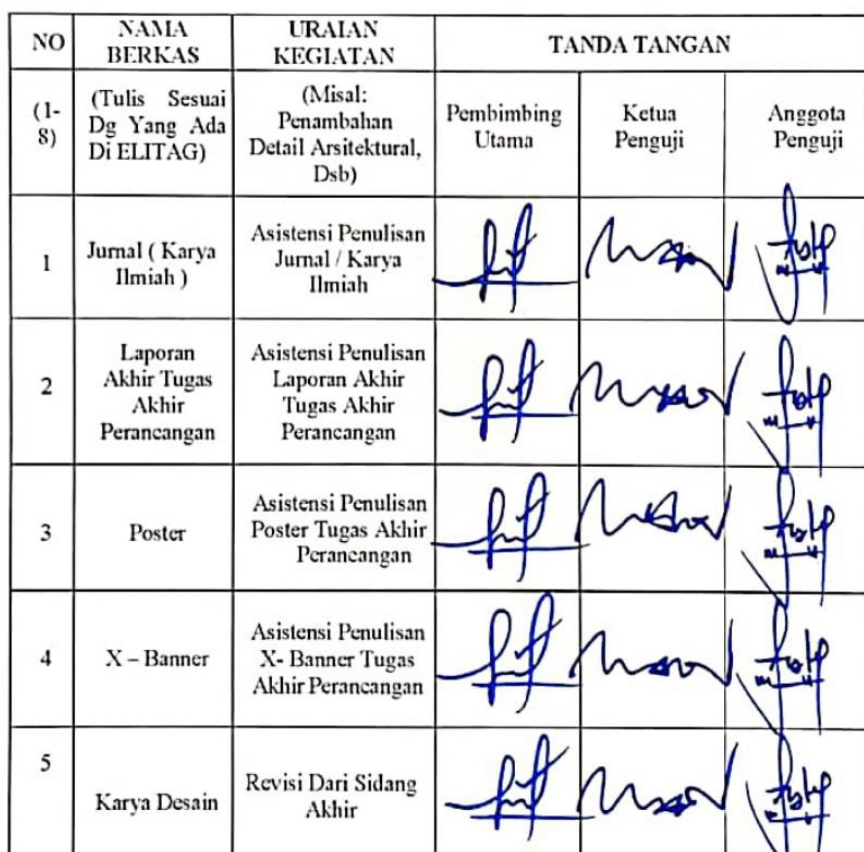 NO
NAMA
BERKAS
URAIAN
KEGIATAN
TANDA TANGAN
(1-
8)
(Tulis Sesuai
Dg Yang Ada
Di ELITAG)
(Misal:
Penambahan
Detail Arsitektural,
Dsb)
Pembimbing
Utama
Ketua
Penguji
Anggota
Penguji
1
Jurnal ( Karya
Ilmiah )
Asistensi Penulisan
Jurnal / Karya
Ilmiah
2
Laporan
Akhir Tugas
Akhir
Perancangan
Asistensi Penulisan
Laporan Akhir
Tugas Akhir
Perancangan
3
Poster
Asistensi Penulisan
Poster Tugas Akhir
Perancangan
4
X – Banner
Asistensi Penulisan
X- Banner Tugas
Akhir Perancangan
5
Karya Desain
Revisi Dari Sidang
Akhir